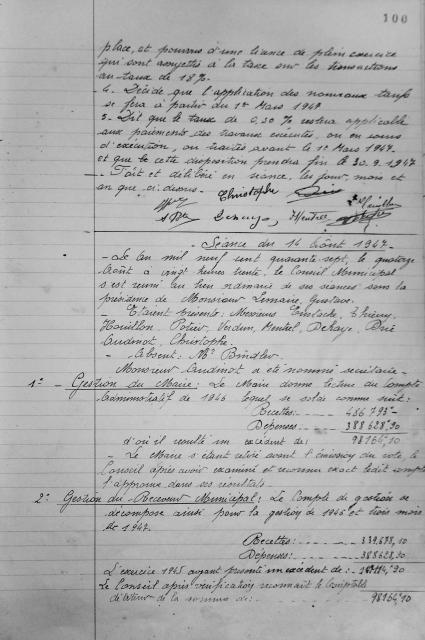 100
place, et pourvu d'une licence de plein exercice
qui sont assujettis à la taxe sur les transactions
au taux de 18 %.
- 4. Décide que l'application des nouveaux tarifs
se fera à partir du 1er Mars 1947
5. Dit que le taux de 0,50 % restera applicable
aux paiements des travaux exécutés, ou en cours
d'exécution, ou traités avant le 1er Mars 1947.
et que cette disposition prendra fin le 30.9.1947
- Fait et délibéré en séance, les jour, mois et
an que ci-dessus. - Christophe
Séance du 14 Août 1947 -
- Le an mil neuf cent quarante sept, le quatorze
Août à vingt heures trente, le Conseil Municipal
s'est réuni au lieu ordinaire de ses séances sous la
présidence de Monsieur Lemaire, Gustave.
- Etaient présents: Messieurs Eustache, Thierry,
Houillon - Potier, Verdun, Dehaye,
Audinot, Christophe.
- Absent: Mr Bindler.
Monsieur Audinot a été nommé secrétaire -
1° - Gestion du Maire: Le Maire donne lecture du Compte
Administratif de 1946 lequel se solde comme suit:
Recettes: - - - - 486.793 -
Dépenses - - - - 388628,90
d'où il résulte un excédent de: 98164,10
- Le Maire s'étant retiré avant l'émission du vote, le
Conseil après avoir examiné et reconnu exact ledit compte
l'approuve dans ses résultats -
2° Gestion du Receveur Municipal: Le Compte de gestion se
décompose ainsi pour la gestion de 1946 et trois mois
de 1947.
Recettes: - - -
Dépenses: - - - 388628,90
L'exercice 1945 ayant présenté un excédent de: -
Le Conseil après vérification reconnait le Comptable
débiteur de la somme de: - - - 98164,10